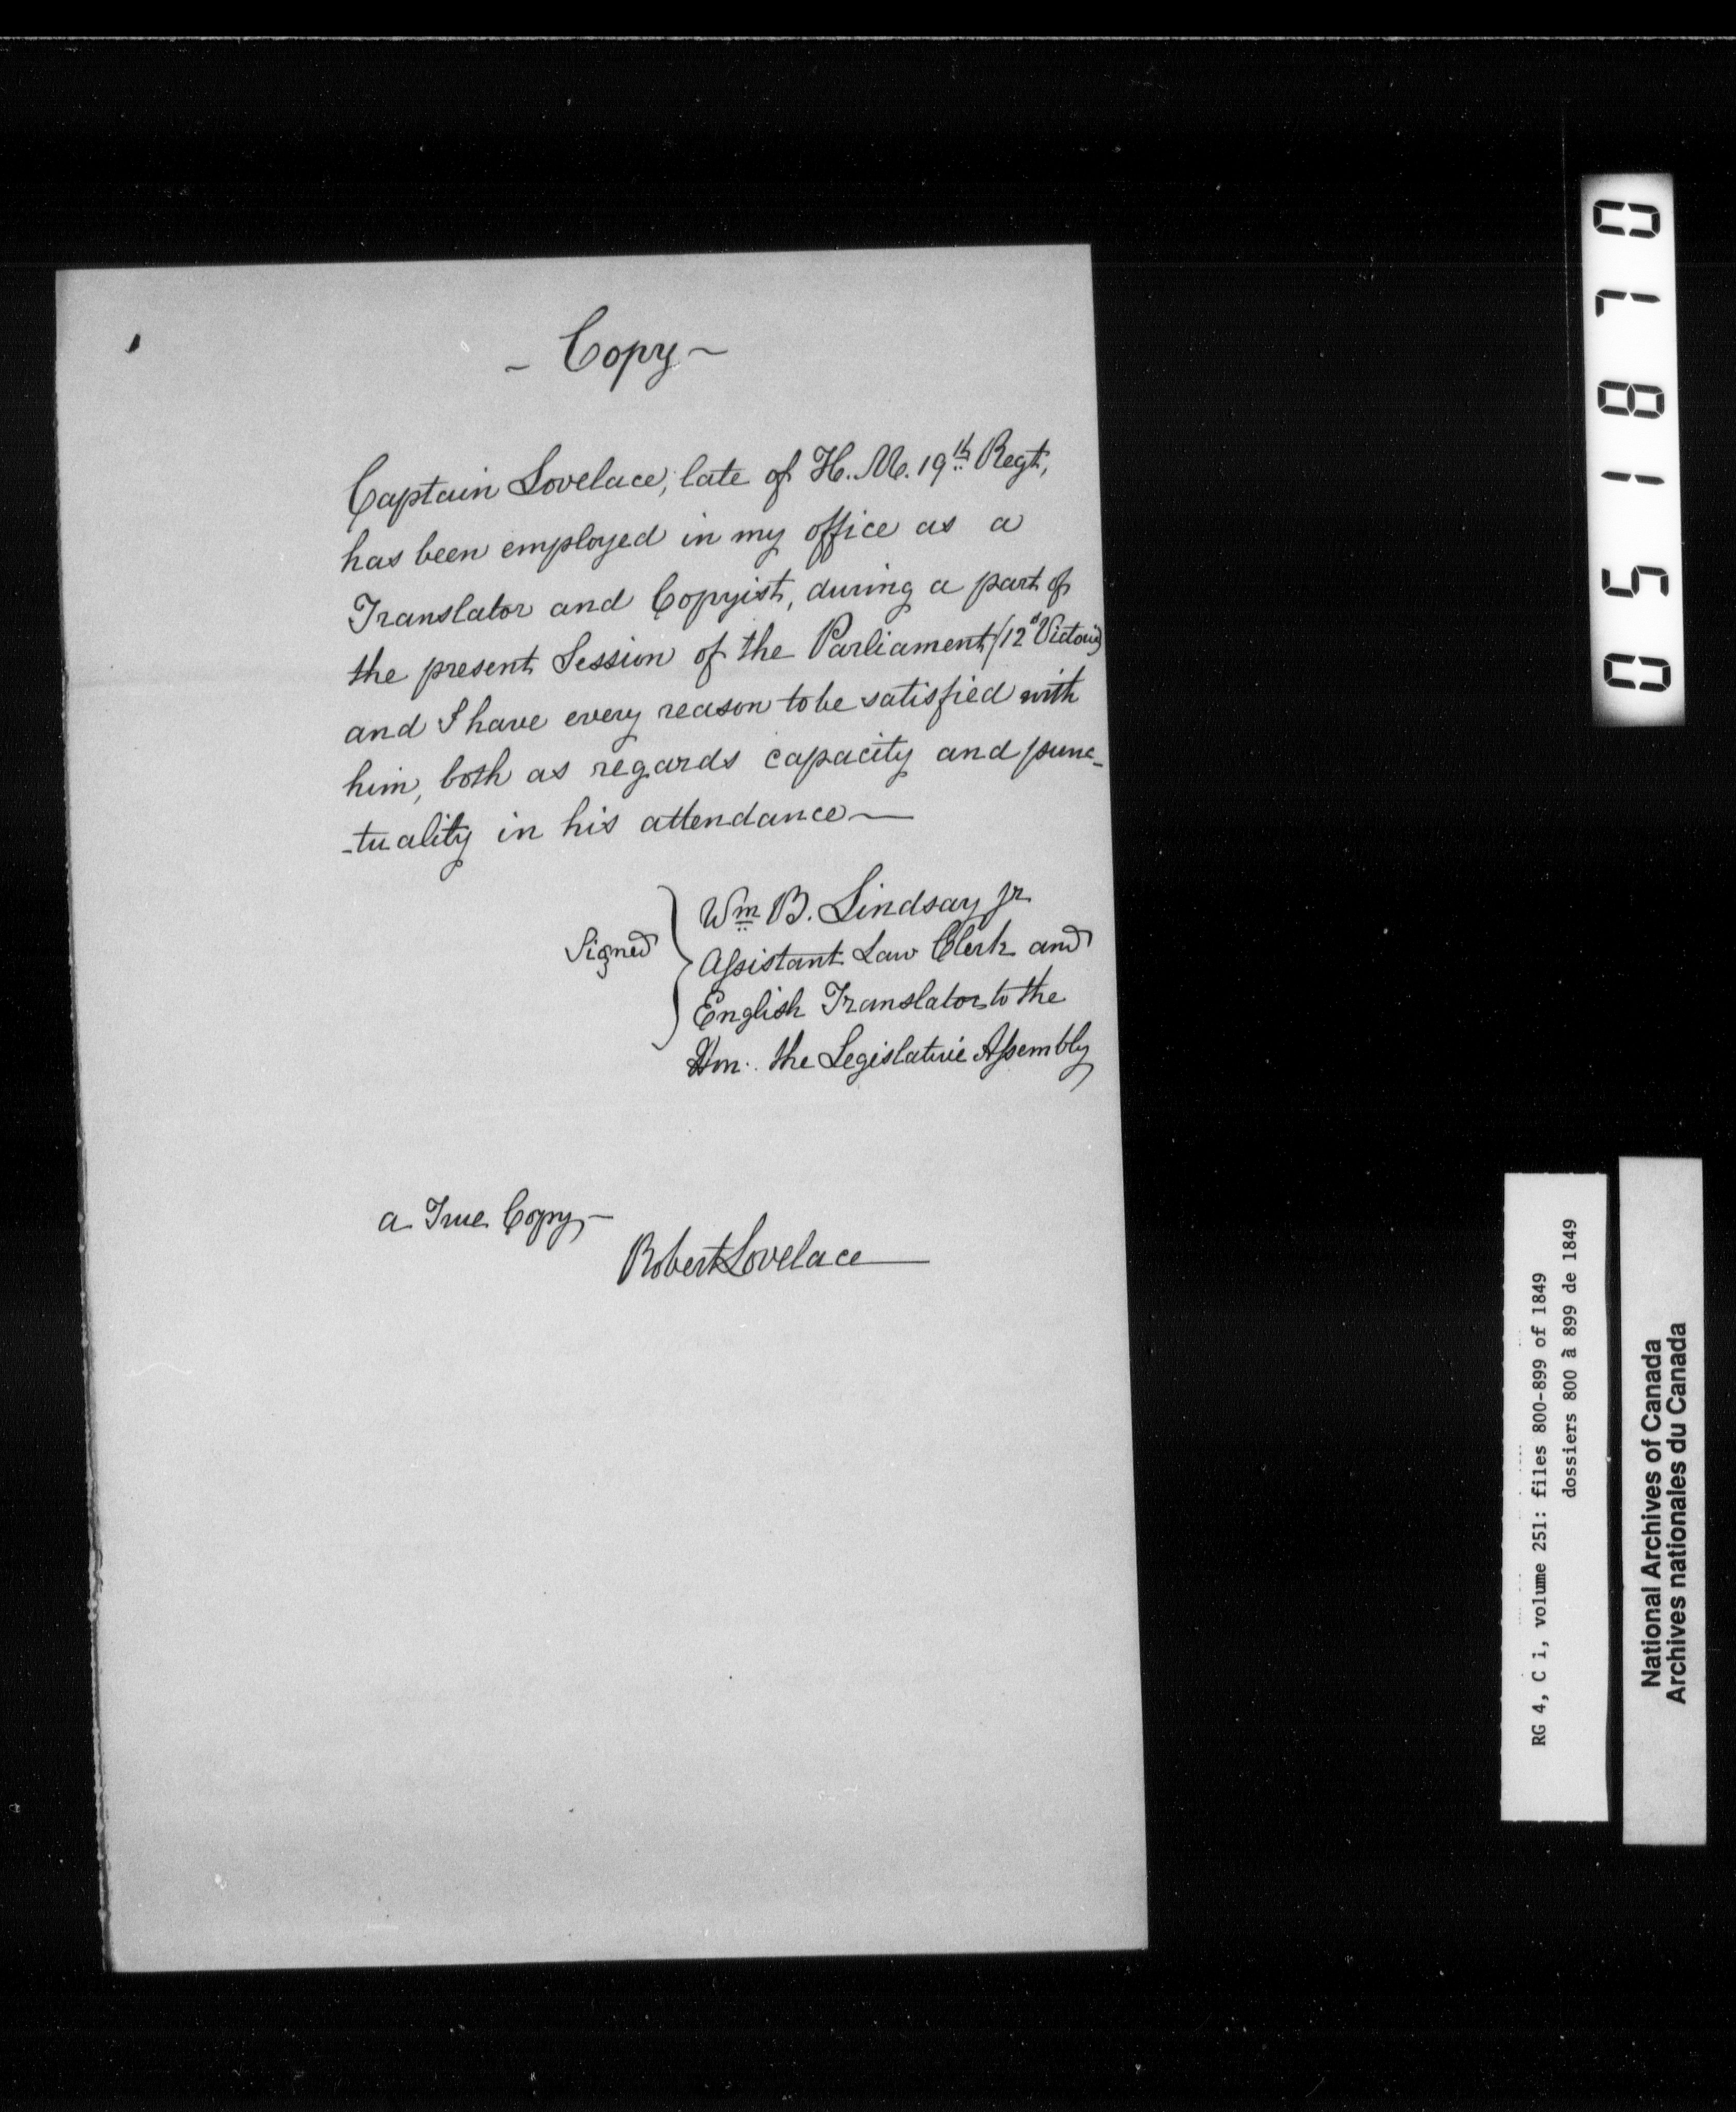 - Copy -
Captain Lovelace, late of H. M. 19th Regt,
has been employed in my office as a
Translator and Copyist, during a part of
the present Session of the Parliament (12° Victoria)
and I have every reason to be satisfied with
him, both as regards capacity and punc-
-tuality in his attendance—
Signed
Wm B. Lindsay jr
Assistant Law Clerk and
English Translator to the
Hon. the Legislative Assembly
a True Copy —
Robert Lovelace
051870
RG 4, C 1, volume 251: files 800-899 of 1849
dossiers 800 à 899 de 1849
National Archives of Canada
Archives nationales du Canada